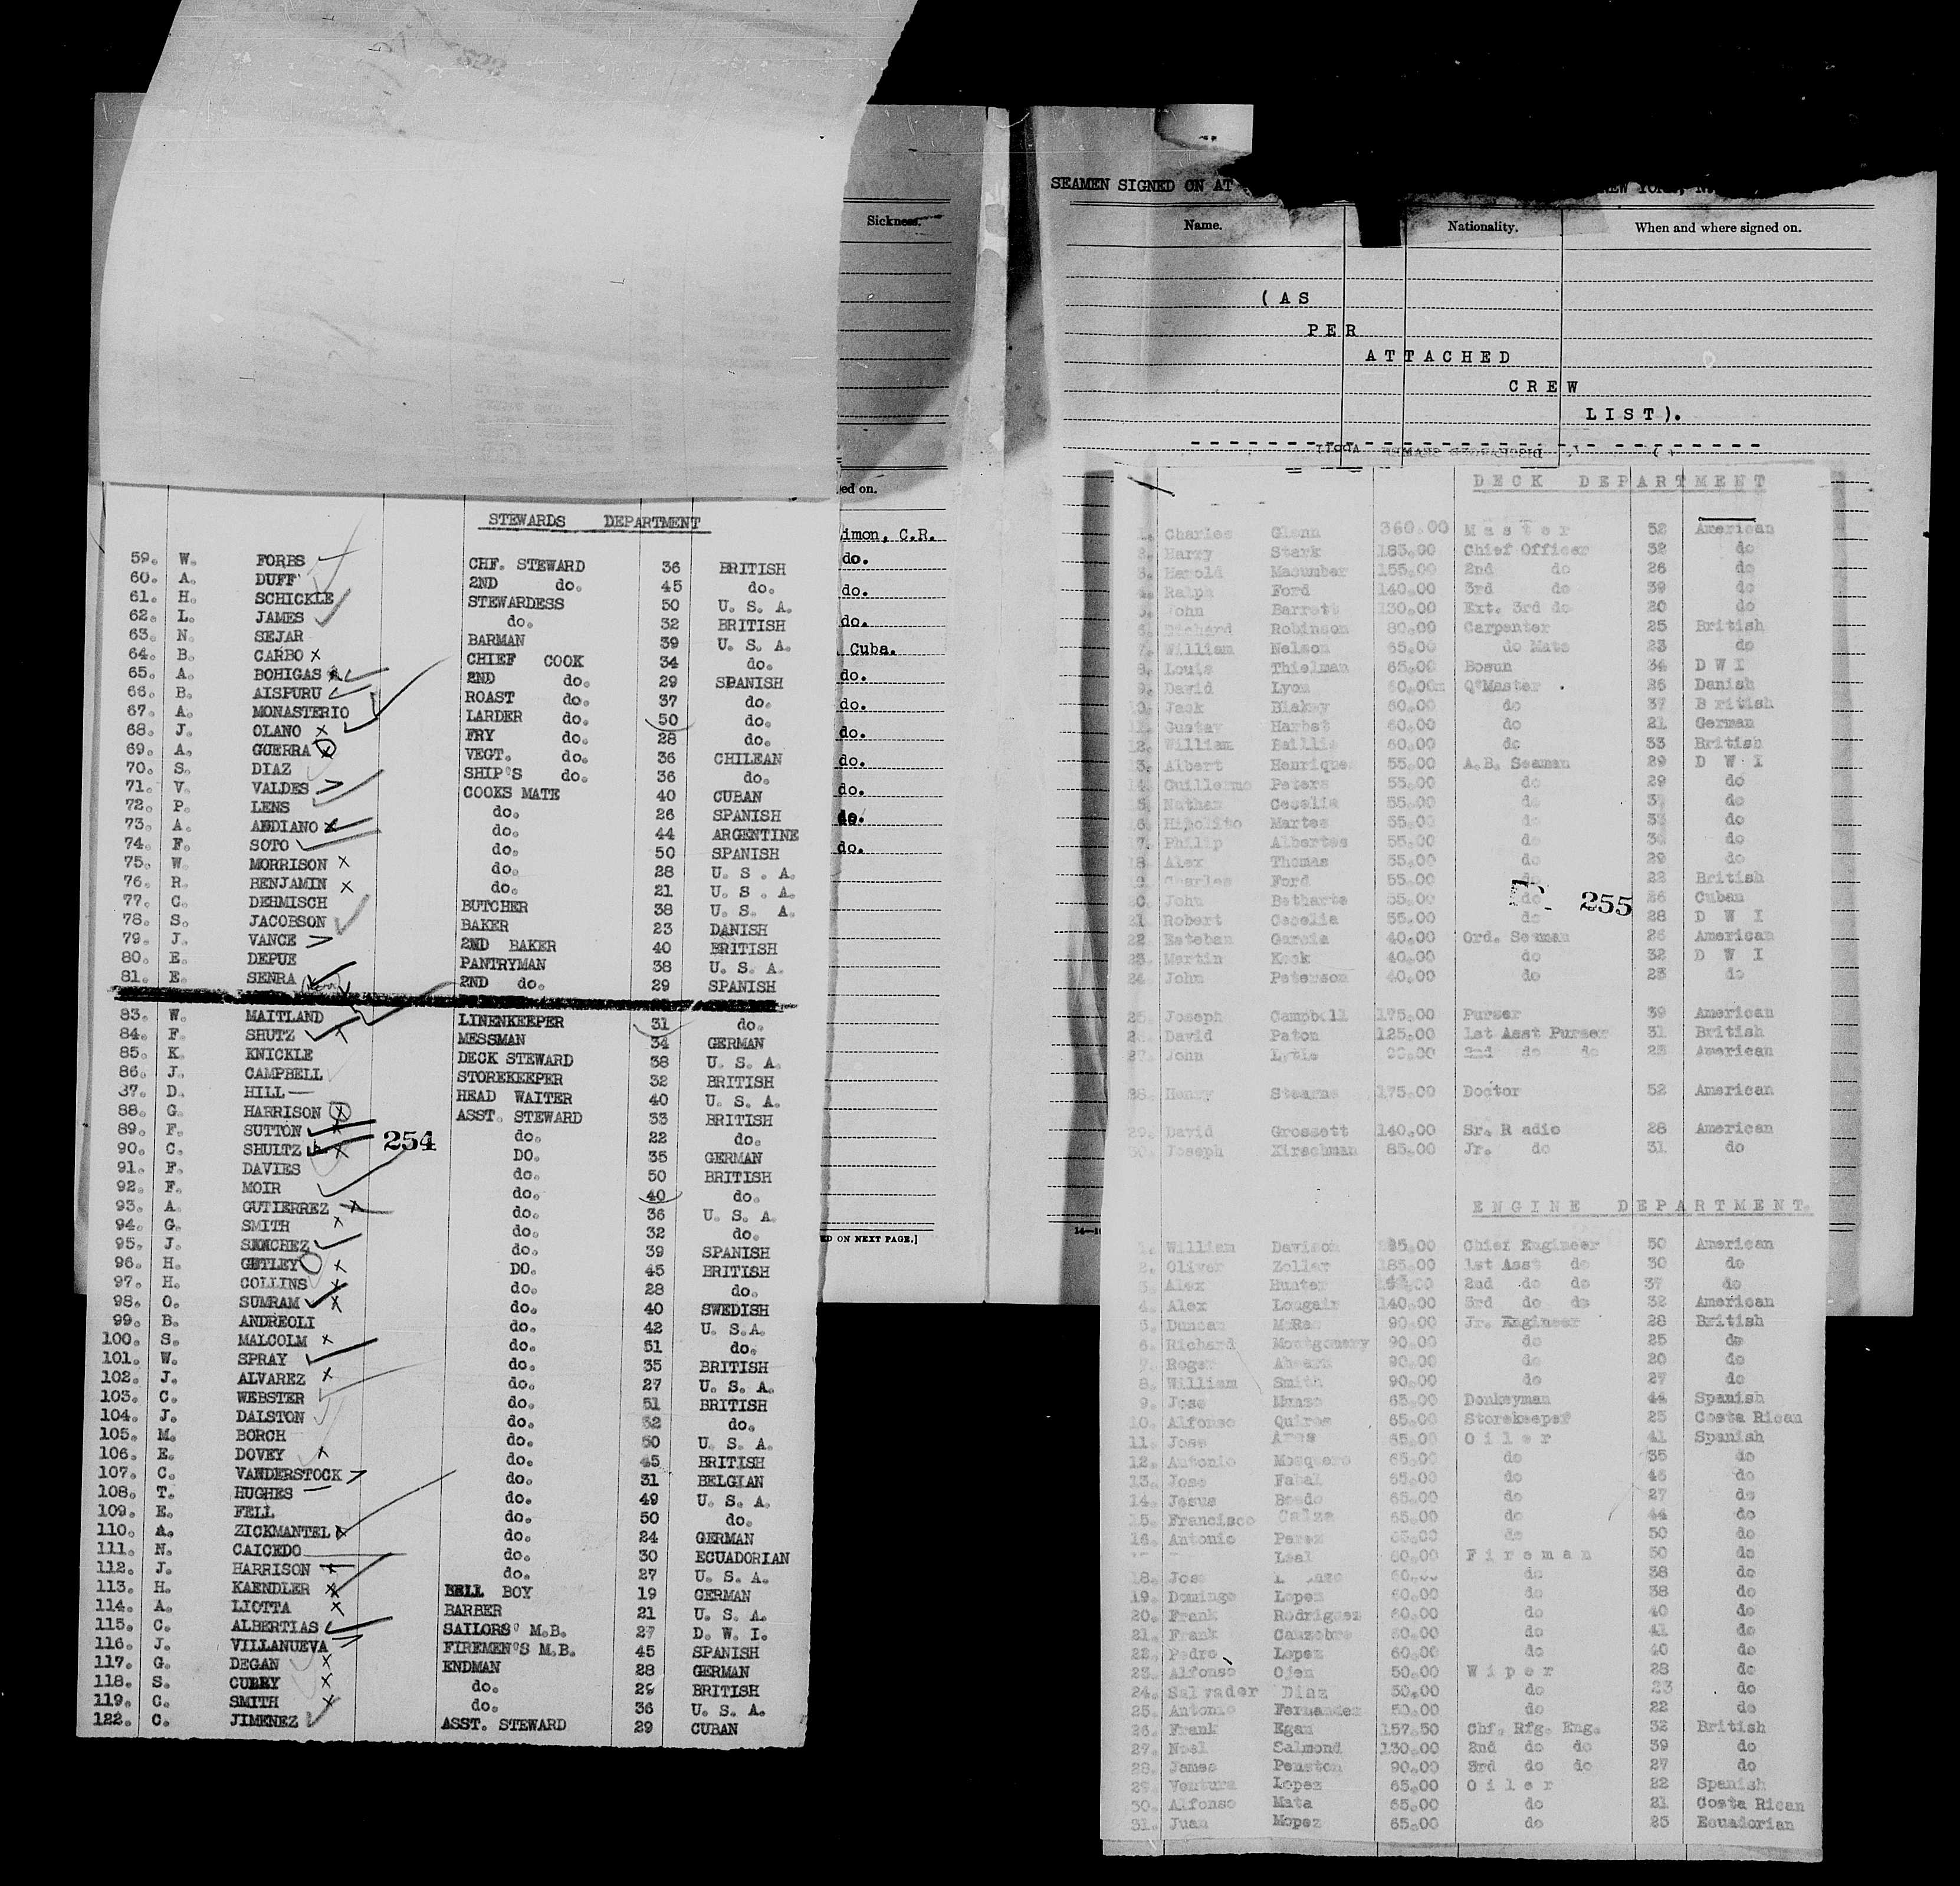 Sickness.
ed on.
imon, C.R.
do.
do.
do.
Cuba.
do.
do.
do.
do.
do.
do.
do.
ED ON NEXT PAGE.]
STEWARDS DEPARTMENT
59. W. FORBS CHF. STEWARD 36 BRITISH
60. A. DUFF 2ND do. 45 do.
61. H. SCHICKLE STEWARDESS 50 U. S. A.
62. L. JAMES do. 32 BRITISH
63. N. SEJAR BARMAN 39 U. S. A.
64. B. CARBO CHIEF COOK 34 do.
65. A. BOHIGAS 2ND do. 29 SPANISH
66. B. AISPURU ROAST do. 37 do.
67. A. MONASTERIO LARDER do. 50 do.
68. J. OLANO FRY do. 28 do.
69. A. GUERRA VEGT. do. 36 CHILEAN
70. S. DIAZ SHIP'S do. 36 do.
71. V. VALDES COOKS MATE 40 CUBAN
72. P. LENS do. 26 SPANISH
73. A. ANDIANO do. 44 ARGENTINE
74. F. SOTO do. 50 SPANISH
75. W. MORRISON do. 28 U. S. A.
76. R. BENJAMIN do. 21 U. S. A.
77. C. DEHMISCH BUTCHER 38 U. S. A.
78. S. JACOBSON BAKER 23 DANISH
79. J. VANCE 2ND BAKER 40 BRITISH
80. E. DEPUE PANTRYMAN 38 U. S. A.
81. E. SENRA 2ND do. 29 SPANISH
83. W. MAITLAND LINENKEEPER 31 do.
84. F. SHUTZ MESSMAN 34 GERMAN
85. K. KNICKLE DECK STEWARD 38 U. S. A.
86. J. CAMPBELL STOREKEEPER 32 BRITISH
87. D. HILL HEAD WAITER 40 U. S. A.
88. G. HARRISON ASST. STEWARD 33 BRITISH
89. F. SUTTON do. 22 do.
90. C. SHULTZ DO. 35 GERMAN
254
91. F. DAVIES do. 50 BRITISH
92. F. MOIR do. 40 do.
93. A. GUTIERREZ do. 36 U. S. A.
94. G. SMITH do. 32 do.
95. J. SANCHEZ do. 39 SPANISH
96. H. GETLEY DO. 45 BRITISH
97. H. COLLINS do. 28 do.
98. O. SUMRAM do. 40 SWEDISH
99. B. ANDREOLI do. 42 U. S.A.
100. S. MALCOLM do. 51 do.
101. W. SPRAY do. 35 BRITISH
102. J. ALVAREZ do. 27 U. S. A.
103. C. WEBSTER do. 51 BRITISH
104. J. DALSTON do. 52 do.
105. M. BORCH do. 50 U. S. A.
106. E. DOVEY do. 45 BRITISH
107. C. VANDERSTOCK do. 31 BELGIAN
108. T. HUGHES do. 49 U. S. A.
109. E. FELL do. 50 do.
110. A. ZICKMANTEL do. 24 GERMAN
111. N. CAICEDO do. 30 ECUADORIAN
112. J. HARRISON do. 27 U. S. A.
113. H. KAENDLER BELL BOY 19 GERMAN
114. A. LIOTTA BARBER 21 U. S. A.
115. C. ALBERTIAS SAILORS' M.B. 27 D. W. I.
116. J. VILLANUEVA FIREMEN'S M.B. 45 SPANISH
117. G. DEGAN ENDMAN 28 GERMAN
118. S. CURRY do. 29 BRITISH
119. C. SMITH do. 36 U. S. A.
122. C. JIMENEZ ASST. STEWARD 29 CUBAN
SEAMEN SIGNED ON AT
Name. Nationality. When and where signed on.
(AS
PER
ATTACHED
CREW
LIST).
DECK DEPARTMENT
1. Charles Glenn 360.00 Master 52 American
2. Harry Stark 185.00 Chief Officer 32 do
3. Harold Macumber 155.00 2nd do 26 do
4. Ralph Ford 140.00 3rd do 39 do
5. John Barrett 130.00 Ext. 3rd do 20 do
6. Richard Robinson 80.00 Carpenter 25 British
7. William Nelson 65.00 do Mate 23 do
8. Louis Thielman 65.00 Bosun 34 D W I
9. David Lyon 60.00 Q'Master 26 Danish
10. Jack Blakey 60.00 do 37 B ritish
11. Gustav Harbst 60.00 do 21 German
12. William Baillie 60.00 do 33 British
13. Albert Henrique 55.00 A.B. Seaman 29 D W I
14. Guillermo Peters 55.00 do 29 do
15. Nathan Cecelia 55.00 do do
16. Hipolito Martes 55.00 do do
17. Philip Albertes 55.00 do do
18. Alex Thomas 55.00 do 29 do
19. Charles Ford 55.00 do 22 British
20. John Betharte 55.00 do 26 Cuban
255
21. Robert Cecelia 55.00 do 28 D W I
22. Esteban Garcia 40.00 Ord. Seaman 26 American
23. Martin Kock 40.00 do 32 D W I
24. John Peterson 40.00 do 23 do
25. Joseph Campbell 175.00 Purser 39 American
26. David Paton 125.00 1st Asst Purser 31 British
27. John Lytle 2nd do do 23 American
28. Henry Stearns 175.00 Doctor 52 American
29. David Grossett 140.00 Sr. R adio 28 American
30. Joseph Kirschman 85.00 Jr. do 31 do
ENGINE DEPARTMENT.
1. William Davison Chief Engineer 50 American
2. Oliver Zollar 185.00 1st Asst do 30 do
3. Alex Hunter 2nd do do 37 do
4. Alex Lougair 140.00 3rd do do 32 American
5. Duncan McRae 90.00 Jr. Engineer 28 British
6. Richard Montgomery 90.00 do 25 do
7. Roger Ahearn 90.00 do 20 do
8. William Smith 90.00 do 27 do
9. Jose Munzo 65.00 Donkeyman 44 Spanish
10. Alfonso Quiros 65.00 Storekeeper 23 Costa Rican
11. Jose 65.00 Oiler 41 Spanish
12. Antonio Mosquero 65.00 do 35 do
13. Jose Fabal 65.00 do 46 do
14. Jesus 65.00 do 27 do
15. Francisco Calza 65.00 do 44 do
16. Antonio Perez 65.00 do 50 do
Leal 60.00 Fireman 30 do
18. Jose 60.00 do 38 do
19. Domingo Lopez 60.00 do 38 do
20. Frank Rodriguez 60.00 do 40 do
21. Frank Cauzobre 60.00 do 41 do
22. Pedro Lopez 60.00 do 40 do
23. Alfonso Ojen 50.00 Wiper 28 do
24. Salvador Diaz 50.00 do 23 do
25. Antonio Fernandez 50.00 do 22 do
26. Frank Egan 157.50 Chf. Rfg. Eng. 32 British
27. Noel Salmond 130.00 2nd do do 39 do
28. James Penston 90.00 3rd do do 27 do
29. Ventura Lopez 65.00 Oiler 22 Spanish
30. Alfonso Mata 65.00 do 21 Costa Rican
31. Juan Mopez 65.00 do 25 Ecuadorian